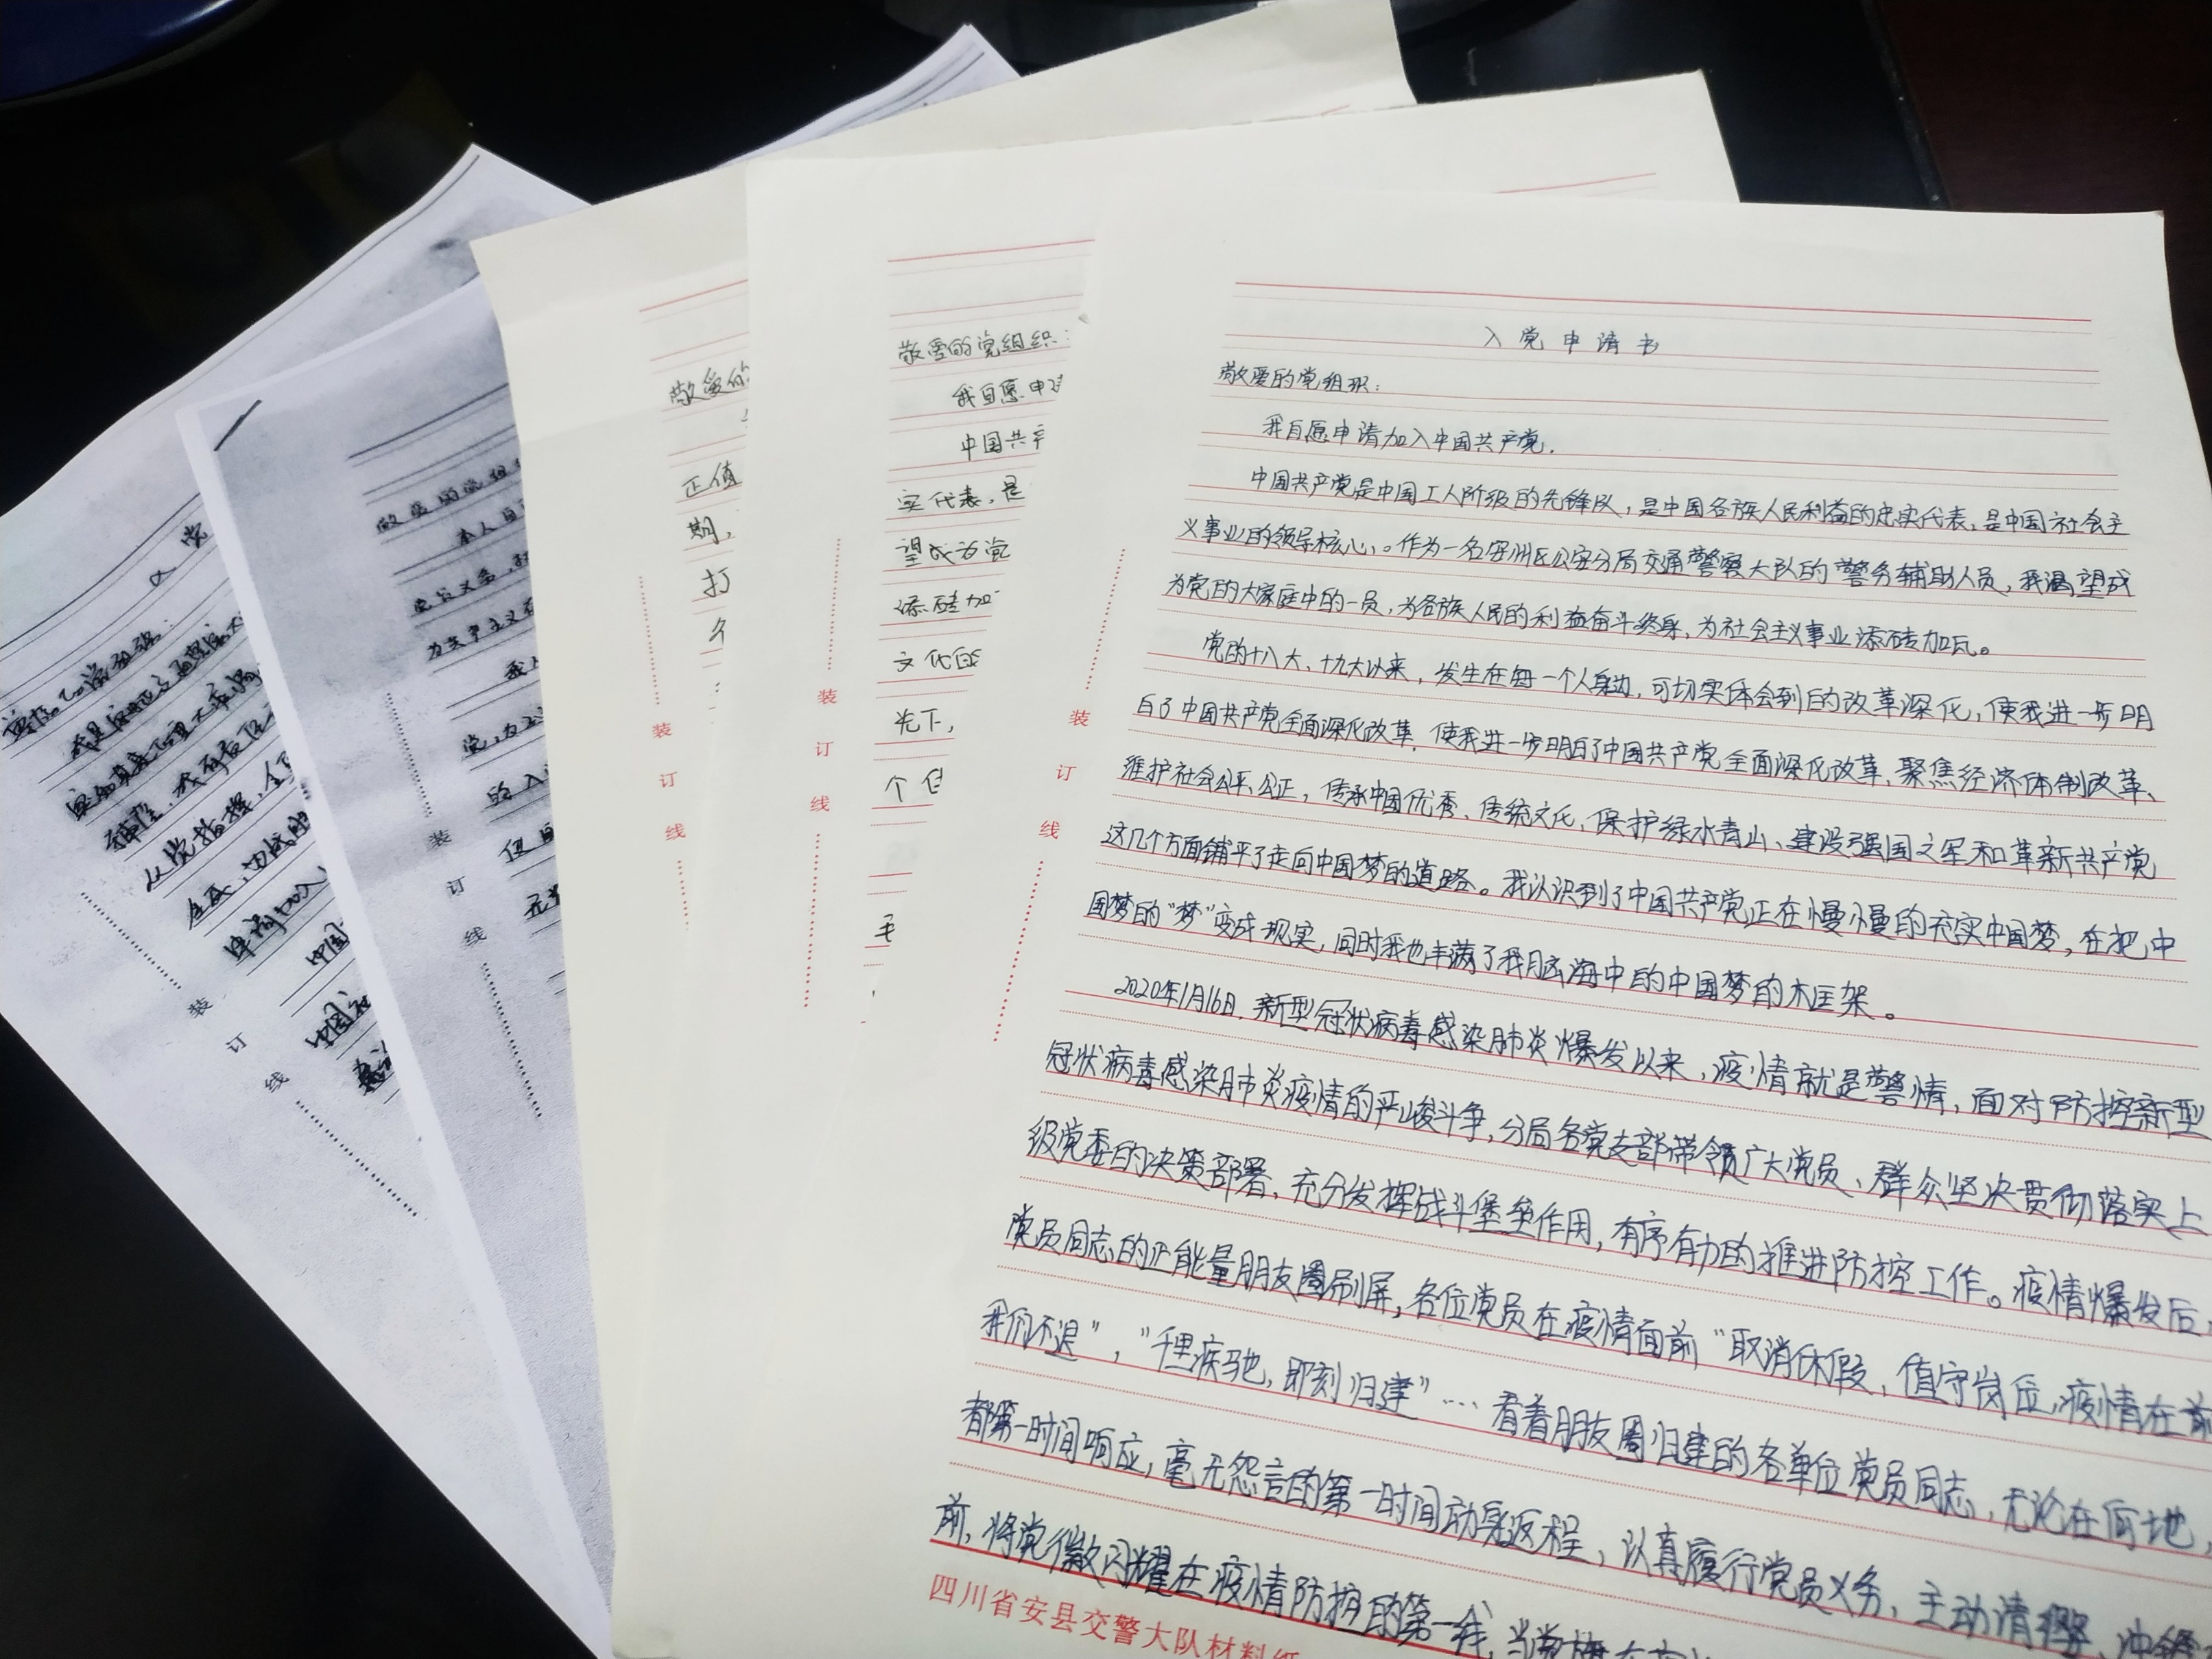 入党申请书
敬爱的党组织：
我自愿申请加入中国共产党.
中国共产党是中国工人阶级的先锋队，是中国各族人民利益的忠实代表，是中国社会主
义事业的领导核心。作为一名安州区公安分局交通警察大队的警务辅助人员，我渴望成
为党的大家庭中的一员，为各族人民的利益奋斗终身，为社会主义事业添砖加瓦。
党的十八大、十九大以来，发生在每一个人身边，可切实体会到的改革深化，使我进一步明
白了中国共产党全面深化改革，使我进一步明白了中国共产党全面深化改革、聚焦经济体制改革、
维护社会公平、公正，传承中国优秀、传统文化、保护绿水青山、建设强国之军和革新共产党
这几个方面铺平了走向中国梦的道路。我认识到了中国共产党正在慢慢的充实中国梦，在把中
国梦的“梦”变成现实，同时我也丰满了我脑海中的中国梦的木匡架。
2020年1月16日，新型冠状病毒感染肺炎爆发以来，疫情就是警情，面对防控新型
冠状病毒感染肺炎疫情的严峻斗争，分局各党支部带领广大党员、群众坚决贯彻落实上
级党委的决策部署，充分发挥战斗堡垒作用，有序有力的推进防控工作。疫情爆发后，
党员同志的正能量朋友圈刷屏，各位党员在疫情面前“取消休假，值守岗位，疫情在前
我们不退”，“千里疾驰，即刻归建”…看着朋友圈归建的各单位党员同志，无论在何地，
都第一时间响应，毫无怨言的第一时间动身返程，认真履行党员义务，主动请缨、冲锋
前，将党徽闪耀在疫情防护的第一线，当党旗在
四川省安县交警大队材料纸
装
订
线
敬爱的党组织：
我自愿申请
中国共产
实代表，是
望成为党
添砖加
文化的
先下，
个
毛
装
订
线
敬爱的
正值
期，
打
装
订
线
敬爱的党组
本人自
党员义务，
为共产主义
我
党，为
的入
但
装
订
线
入党
尊敬的党组织：
从党指挥，
申请加入
中国
中国社
装
订
线